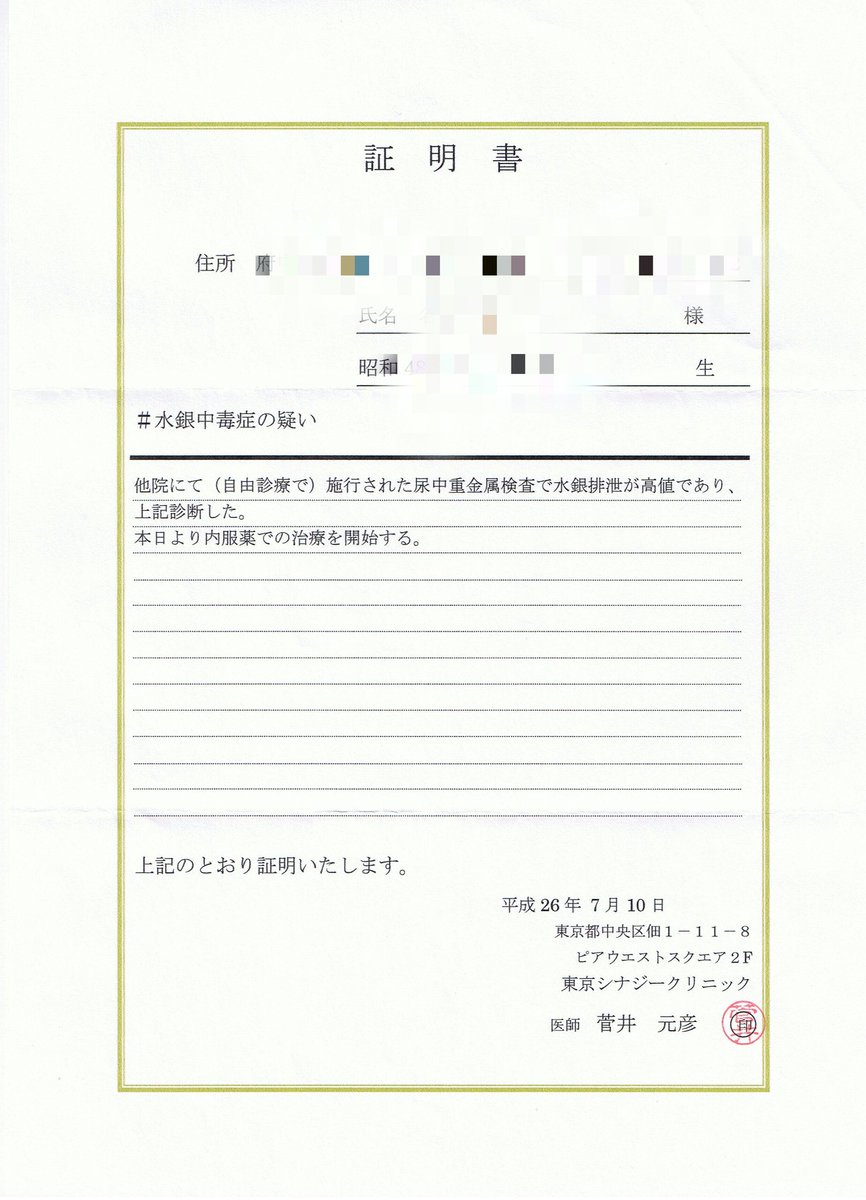 証明書
住所 府
氏名 様
昭和48 生
#水銀中毒症の疑い
他院にて（自由診療で）施行された尿中重金属検査で水銀排泄が高値であり、
上記診断した。
本日より内服薬での治療を開始する。
上記のとおり証明いたします。
平成26年 7月10日
東京都中央区佃1－11－8
ピアウエストスクエア2F
東京シナジークリニック
医師 菅井 元彦 印
菅井